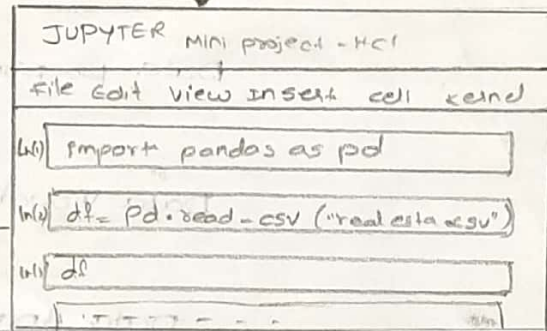 JUPYTER Mini project - HCI
File Edit View Insert cell kernel
In(1) import pandas as pd
In(2) df = pd.read_csv ("real esta csv")
df